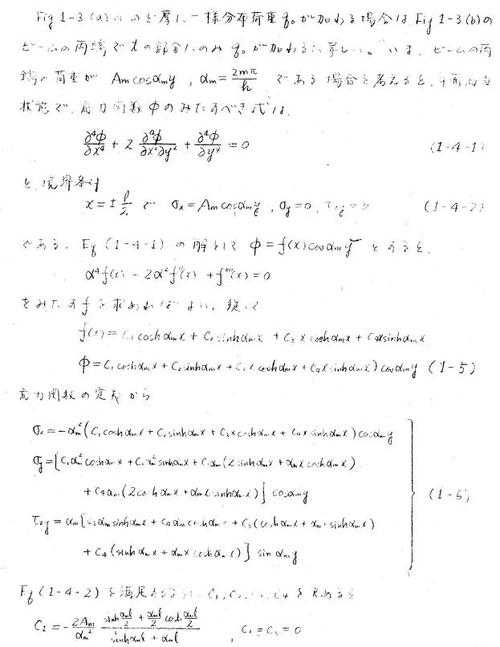 Fig 1-3(a)のを考え、一様分布荷重q₀が加わる場合はFig 1-3(b)の
ビームの両端でtの部分にのみq₀が加わるに等しい。いま、ビームの両
端の荷重が Am cosαmy , αm = 2mπ/h である場合を考えると、平面応力
状態で、応力関数Φのみたすべき式は、
∂⁴Φ/∂x⁴ + 2 ∂⁴Φ/∂x²∂y² + ∂⁴Φ/∂y⁴ = 0 (1-4-1)
と、境界条件
x = ± l/2 で σx = Am cosαmy , σy = 0, τxy = 0 (1-4-2)
である。Eq (1-4-1) の解として Φ = f(x) cosαmy とすると、
α⁴f(x) - 2α²f″(x) + f⁗(x) = 0
をみたすfを求めればよい。従って
f(x) = C₁coshαmx + C₂sinhαmx + C₃xcoshαmx + C₄xsinhαmx
Φ = (C₁coshαmx + C₂sinhαmx + C₃xcoshαmx + C₄xsinhαmx) cosαmy (1-5)
応力関数の定義から
σx = -αm²(C₁coshαmx + C₂sinhαmx + C₃xcoshαmx + C₄xsinhαmx) cosαmy
σy = [C₁αm²coshαmx + C₂αm²sinhαmx + C₃αm(2sinhαmx + αmxcoshαmx)
+ C₄αm(2coshαmx + αmxsinhαmx)] cosαmy (1-6)
τxy = αm[C₁αmsinhαmx + C₂αmcoshαmx + C₃(coshαmx + αmxsinhαmx)
+ C₄(sinhαmx + αmxcoshαmx)] sinαmy
Eq (1-4-2) を満足するように C₁, C₂, C₃, C₄ を求めると
C₁ = - 2Am/αm² · (sinh αml/2 + αml/2 cosh αml/2)/(sinhαml + αml) , C₂ = C₃ = 0